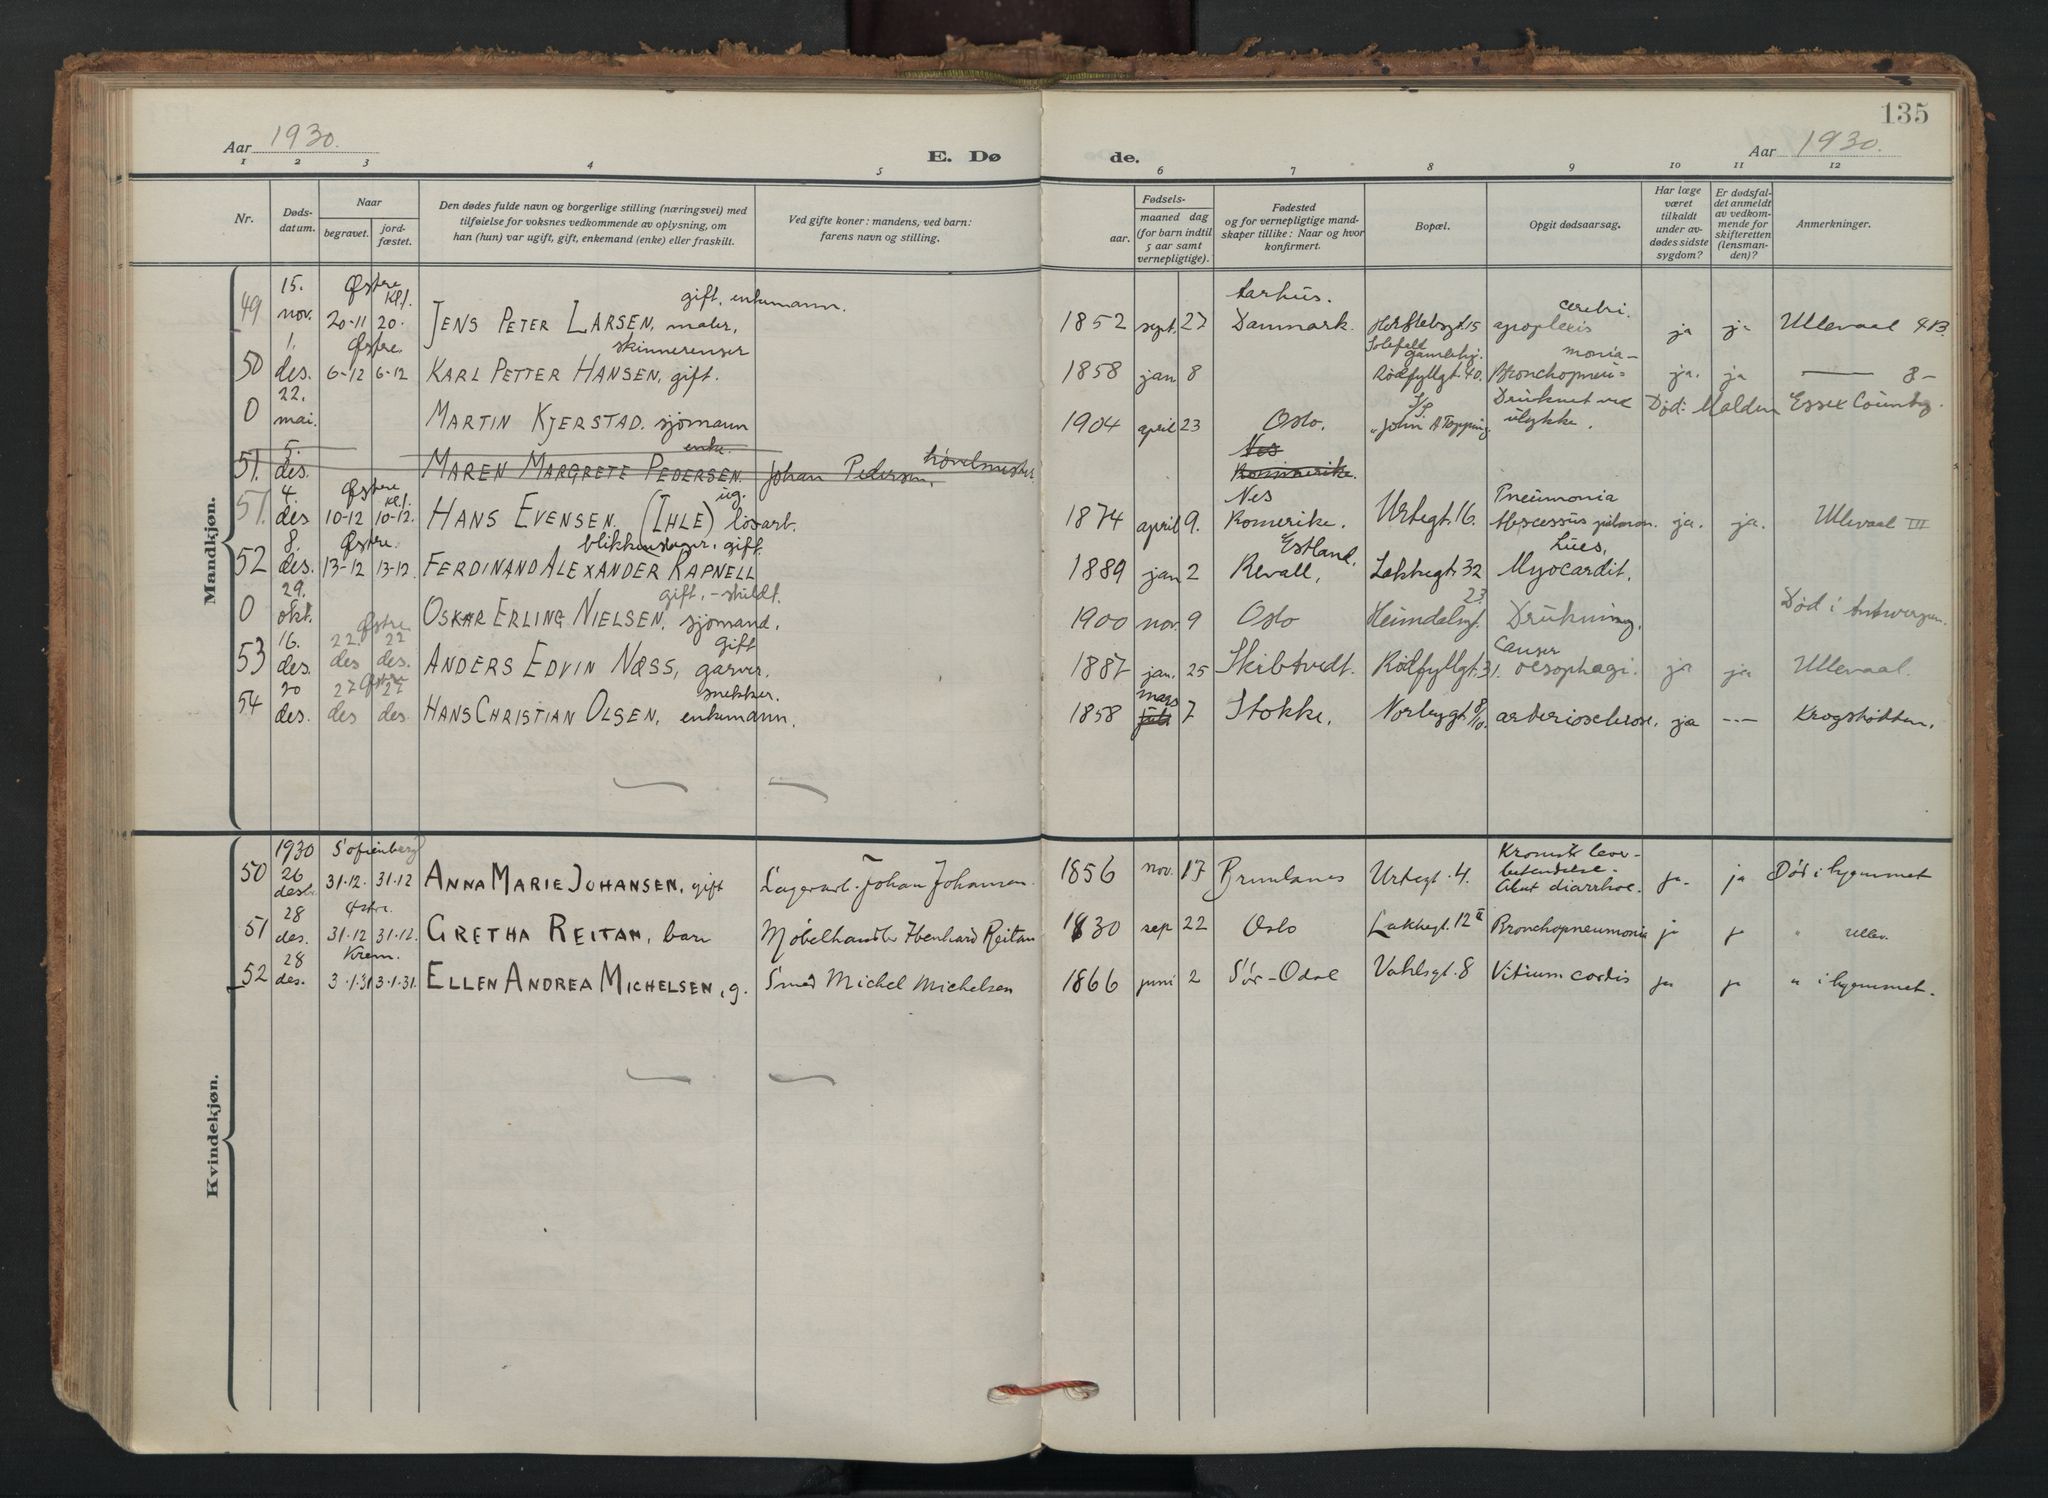 135
Aar 1930. E. Dø de. Aar 1930.
1 2 3 4 5 6 7 8 9 10 11 12
Nr. Døds-datum. Naar begravet. jord-fæstet. Den dødes fulde navn og borgerlige stilling (næringsvei) med tilføielse for voksnes vedkommende av oplysning, om han (hun) var ugift, gift, enkemand (enke) eller fraskilt. Ved gifte koner: mandens, ved barn: farens navn og stilling. Fødsels- aar. maaned dag (for barn indtil 5 aar samt vernepligtige). Fødested og for vernepligtige mandskaper tillike: Naar og hvor konfirmert. Bopæl. Opgit dødsaarsag. Har læge været tilkaldt under avdødes sidste sygdom? Er dødsfaldet anmeldt av vedkommende for skifteretten (lensmanden)? Anmerkninger.
Mandkjøn.
15. Østre Kpl. gift, enkemann. Aarhus. cerebri.
49 nov. 20-11 20. JENS PETER LARSEN, maler, 1852 sept. 27 Danmark. 15 apoplexis ja ja Ullevaal 4B.
1. Østre. skinnerenser gamlehj. monia-
50 des. 6-12 6-12 KARL PETTER HANSEN, gift. 1858 jan 8 Rødfyllgt. 40. Bronchopneu- ja. ja —— 8-
22. S/S. Druknet ved
0 mai. MARTIN KJERSTAD. sjømann 1904 april 23 Oslo. "John A Topping ulykke. Død: Malden Essex County.
5. enke. høvelmester Nes
51. des. MAREN MARGRETE PEDERSEN. Johan Pedersen, Romerike.
4. Østre Kpl. ug. Nes Pneumonia
51. des 10-12 10-12. HANS EVENSEN (IHLE) løsarb. 1874 april 9. Romerike. Urtegt. 16. Abscessus pulmon. ja. ja. Ullevaal III
8. Østre. blikkenslager, gift. Estland. Lues,
52 des. 13-12 13-12 FERDINAND ALEXANDER KAPNELL 1889 jan 2 Revall, Lakkegt. 32 Myocardit.
29. gift, - skildt. 23. Død i Antwerpen.
0 okt. OSKAR ERLING NIELSEN, sjømand. 1900 nov. 9 Oslo Heimdalsgt. Drukning.
16. Østre 22. 22 gift Cancer
53 des. des des. ANDERS EDVIN NÆSS, garver. 1887 jan. 25 Skibtvedt. Rødfyllgt. 31. oesophagi. ja ja Ullevaal.
20 Østre 27 27 snekker. mars
54 des. des des. HANS CHRISTIAN OLSEN, enkemann. 1858 juli 7 Stokke, Norbygt. 8/10. arteriosclerose, ja --- Krogstøtten.
Kvindekjøn.
1930 Sofienberg Kronisk lever-
50 26 desb. 31.12. 31.12 ANNA MARIE JOHANSEN, gift Lagerarb. Johan Johansen 1856 nov. 17 Brunlanes Urtegt. 4. betendelse. Akut diarrhoe. ja. ja Død i hjemmet
28 Østre.
51 des. 31.12 31.12. GRETHA REITAN, barn Møbelhandler Ebenhard Reitan 1930 sep 22 Oslo Lakkegt. 12 II Bronchopneumonia ja ja " Ullev.
28 Krem.
52 des. 3.1.31 3.1.31. ELLEN ANDREA MICHELSEN, g. Smed Michel Michelsen 1866 juni 2 Sør-Odal Vahlsgt. 8 Vitium cordis ja ja " i hjemmet.